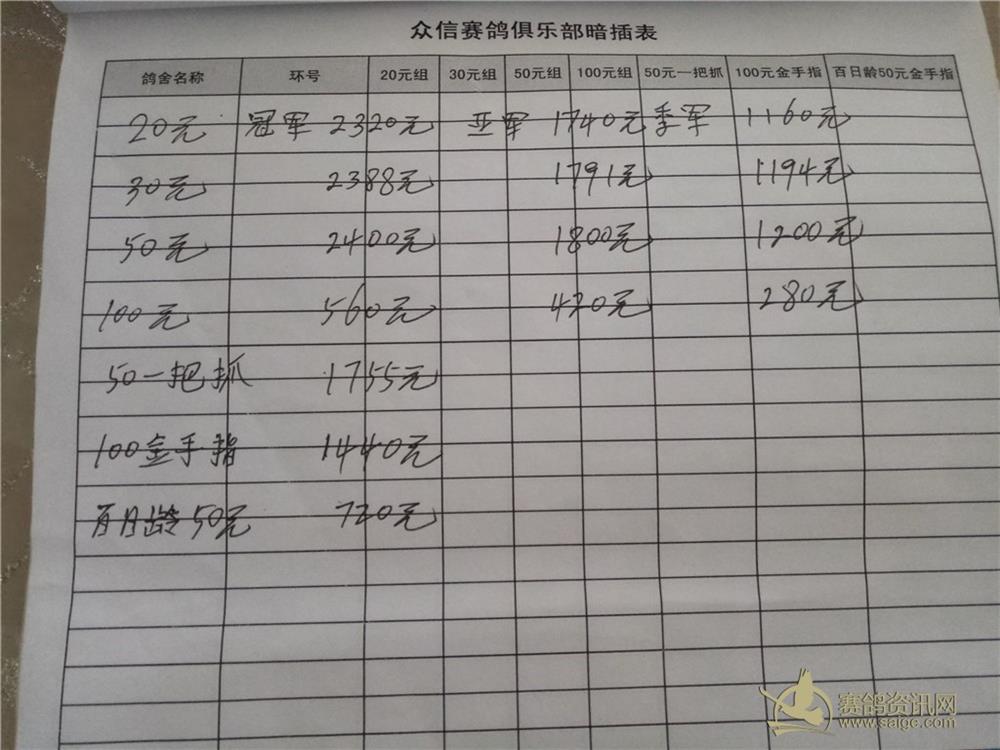 众信赛鸽俱乐部暗插表
鸽舍名称 环号 20元组 30元组 50元组 100元组 50元一把抓 100元金手指 百日龄50元金手指
20元 冠军 2320元 亚军 1740元 季军 1160元
30元 2388元 1791元 1194元
50元 2400元 1800元 1200元
100元 560元 420元 280元
50一把抓 1755元
100金手指 1440元
百日龄50元 720元
赛鸽资讯网
www.saigc.com